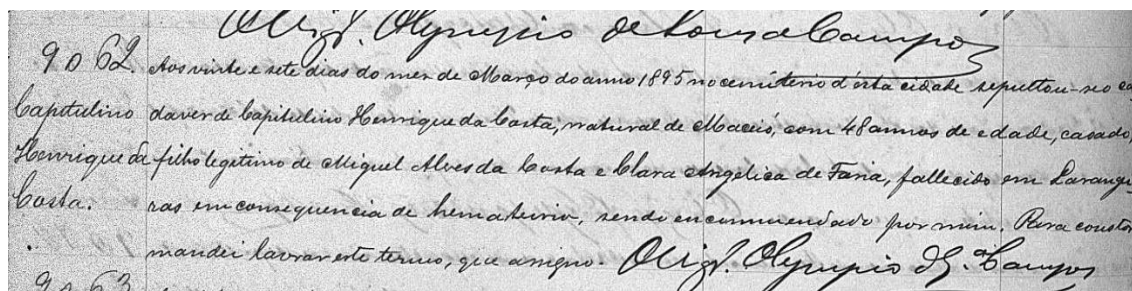 Olympio de Souza Campos
9062. Aos vinte e sete dias do mez de Março do anno 1895 no cemiterio d'esta cidade sepultou-se o ca
Capitulino daver de Capitulino Henrique da Costa, natural de Maceió, com 48 annos de edade, casado,
Henrique da filho legitimo de Miguel Alves da Costa e Clara Angelica de Faria, fallecido em Larangei
Costa. ras em consequencia de, sendo encommendado por mim. Para constar
mandei lavrar este termo, que assigno. Olympio de S. Campos
9063